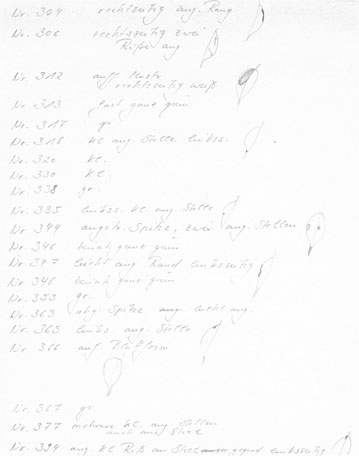 Nr. 304 rechtsseitig ang. Rang
Nr. 306 rechtsseitig zwei
Risse ang
Nr. 312
rechtsseitig weiß
Nr. 313 fast ganz grün
Nr. 317 gr.
Nr. 318 kl ang. Stelle linkss.
Nr. 320 kl.
Nr. 330 kl.
Nr. 338 gr.
Nr. 335 linkss. kl. ang. Stelle
Nr. 344 Spitze, zwei ang. Stellen
Nr. 346 ganz grün
Nr. 347 leicht ang Rand linksseitig
Nr. 348 ganz grün
Nr. 353 gr.
Nr. 363 abg. Spitze ang. leicht ang.
Nr. 365 links. ang. Stelle
Nr. 366 auf. Blattform
Nr. 367 gr
Nr. 377 mehrere kl. ang. Stellen
auch am Stiel
Nr. 394 ang. kl Riß an gegend linksseitig